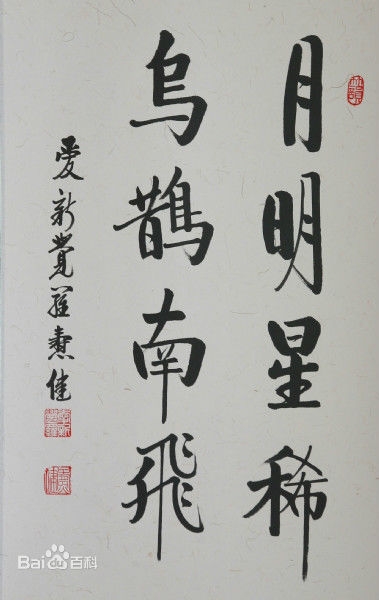 月明星稀
烏鵲南飛
愛新覺羅燾佳
Bai百科